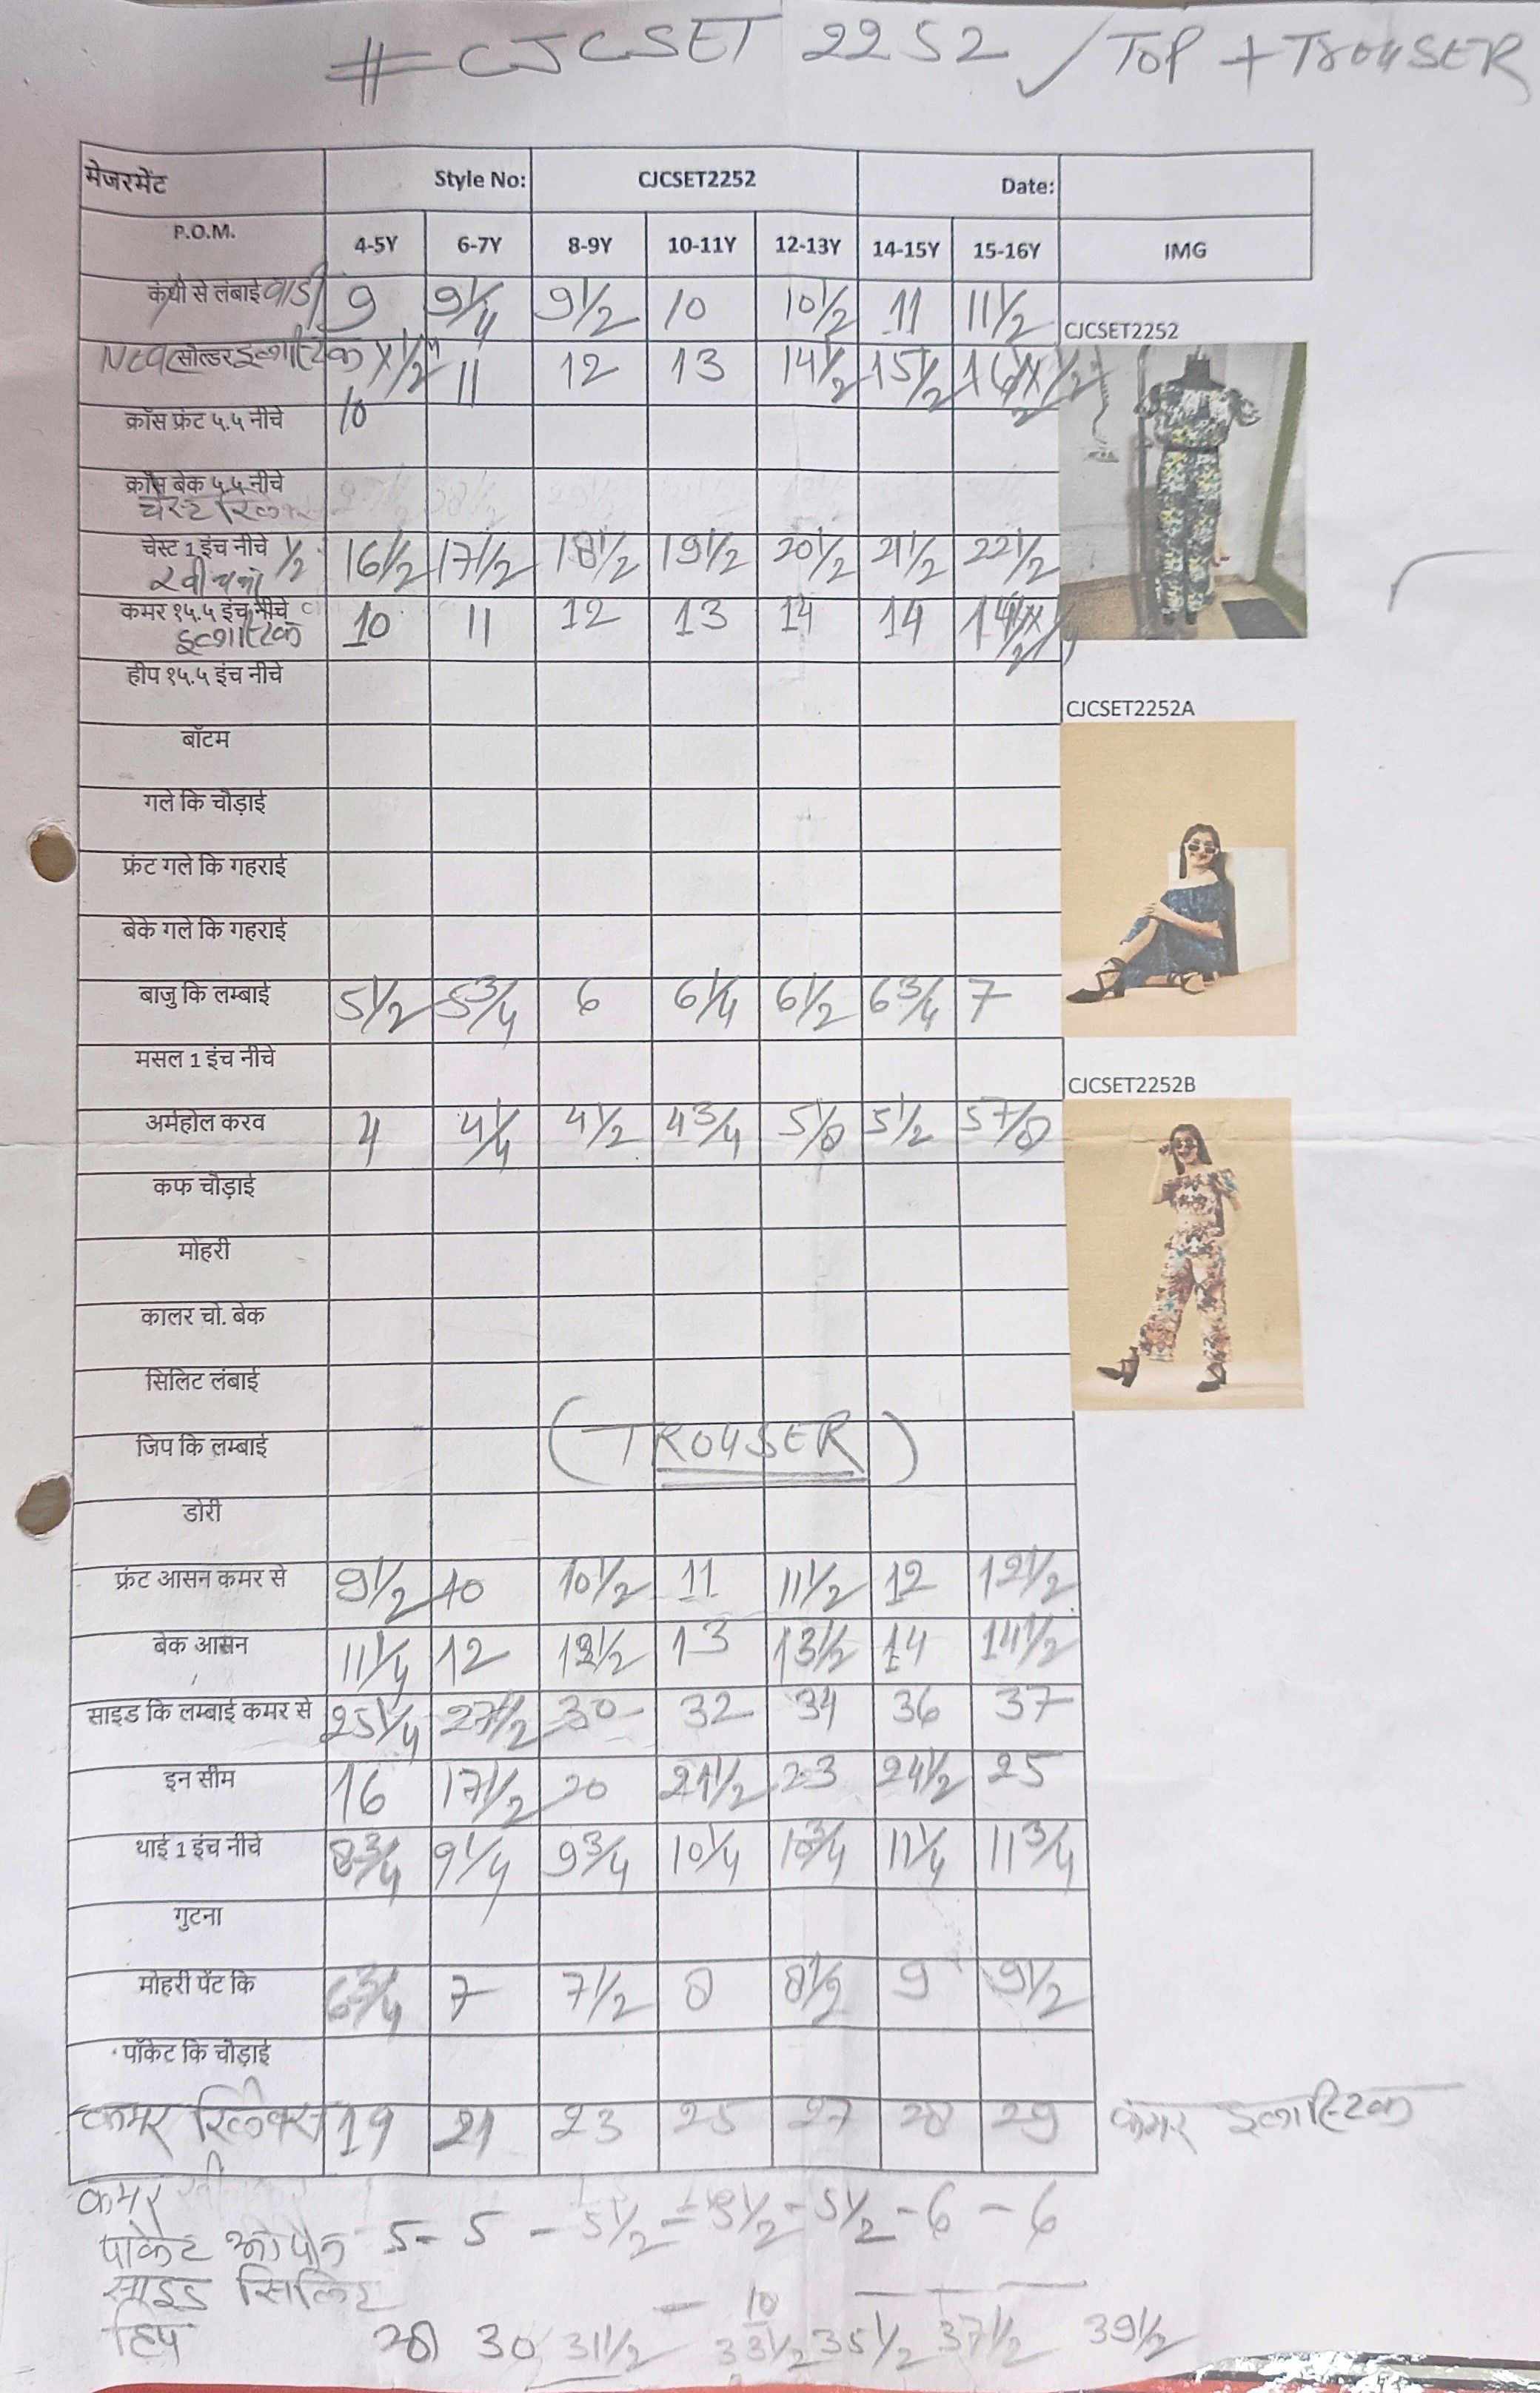 # CJCSET 2252 / TOP + TROUSER
मेजरमेंट Style No: CJCSET2252 Date:
P.O.M. 4-5Y 6-7Y 8-9Y 10-11Y 12-13Y 14-15Y 15-16Y IMG
कंधी से लंबाई वाडी 9 9 1/4 9 1/2 10 10 1/2 11 11 1/2
CJCSET2252
सोल्डर इलास्टिक x 1/2" 10 11 12 13 14 1/2 15 1/2
क्रॉस फ्रंट ५.५ नीचे
क्रॉस बेक ५.५ नीचे
चेस्ट
चेस्ट 1 इंच नीचे 1/2 16 1/2 17 1/2 18 1/2 19 1/2 20 1/2 21 1/2 22 1/2
कमर १५.५ इंच नीचे
इलास्टिक 10 11 12 13 14 14 14 1/2
हीप १५.५ इंच नीचे
CJCSET2252A
बॉटम
गले कि चौड़ाई
फ्रंट गले कि गहराई
बेके गले कि गहराई
बाजु कि लम्बाई 5 1/2 5 3/4 6 6 1/4 6 1/2 6 3/4 7
मसल 1 इंच नीचे
CJCSET2252B
अर्महोल करव 4 4 1/4 4 1/2 4 3/4 5 1/8 5 1/2 5 7/8
कफ चौड़ाई
मोहरी
कालर चो. बेक
सिलिट लंबाई
(TROUSER)
जिप कि लम्बाई
डोरी
फ्रंट आसन कमर से 9 1/2 10 10 1/2 11 11 1/2 12 12 1/2
बेक आसन 11 1/4 12 12 1/2 13 13 1/2 14 14 1/2
साइड कि लम्बाई कमर से 25 1/4 27 1/2 30 32 34 36 37
इन सीम 16 17 1/2 20 21 1/2 23 24 1/2 25
थाई 1 इंच नीचे 8 3/4 9 1/4 9 3/4 10 1/4 10 3/4 11 1/4 11 3/4
गुटना
मोहरी पेंट कि 6 3/4 7 7 1/2 8 8 1/2 9 9 1/2
पॉकेट कि चौड़ाई
कमर रिलेक्स 19 21 23 25 27 28 29 कमर इलास्टिक
कमर
पाकेट ओपेन 5 - 5 - 5 1/2 - 5 1/2 - 5 1/2 - 6 - 6
साइड सिलिट
10
हिप 28 30 31 1/2 33 1/2 35 1/2 37 1/2 39 1/2